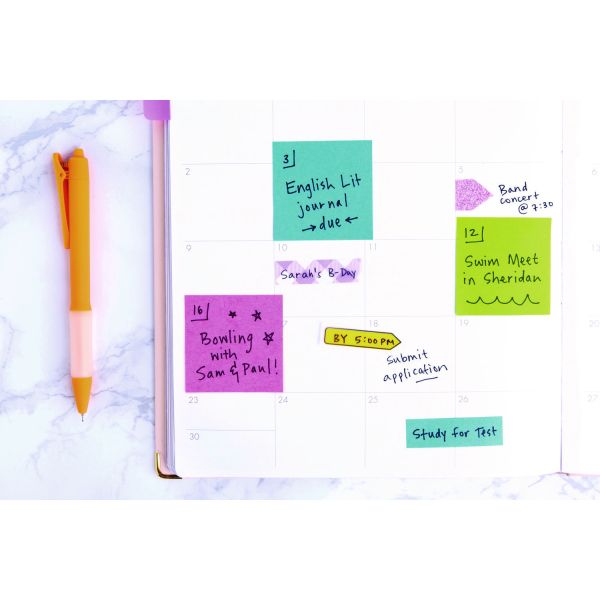 2
3
English Lit
journal
→due←
5
Band
concert
@ 7:30
9
10
11
12
Swim Meet
in Sheridan
Sarah's B-Day
16
Bowling
with
Sam & Paul!
18
BY 5:00PM
Submit
application
19
23
24
25
26
27
Study for Test
30